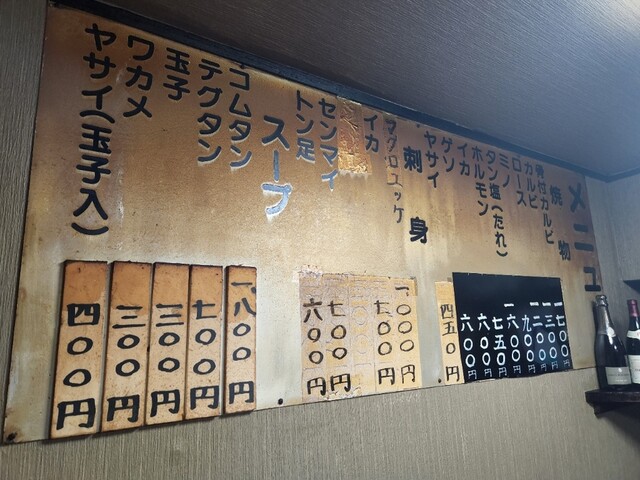 メニュ
焼物
骨付カルビ
カルビ
ロース
ミノ
タン塩(たれ)
ホルモン
イカ
ゲソ
ヤサイ
刺身
マグロユッケ
イカ
センマイ
トン足
スープ
ゴムタン
テグタン
玉子
ワカメ
ヤサイ(玉子入)
一七〇〇円
一三〇〇円
一二〇〇円
九〇〇円
一六〇〇円
七五〇円
六〇〇円
六〇〇円
四五〇円
一〇〇〇円
七〇〇円
七〇〇円
六〇〇円
一八〇〇円
七〇〇円
三〇〇円
三〇〇円
四〇〇円